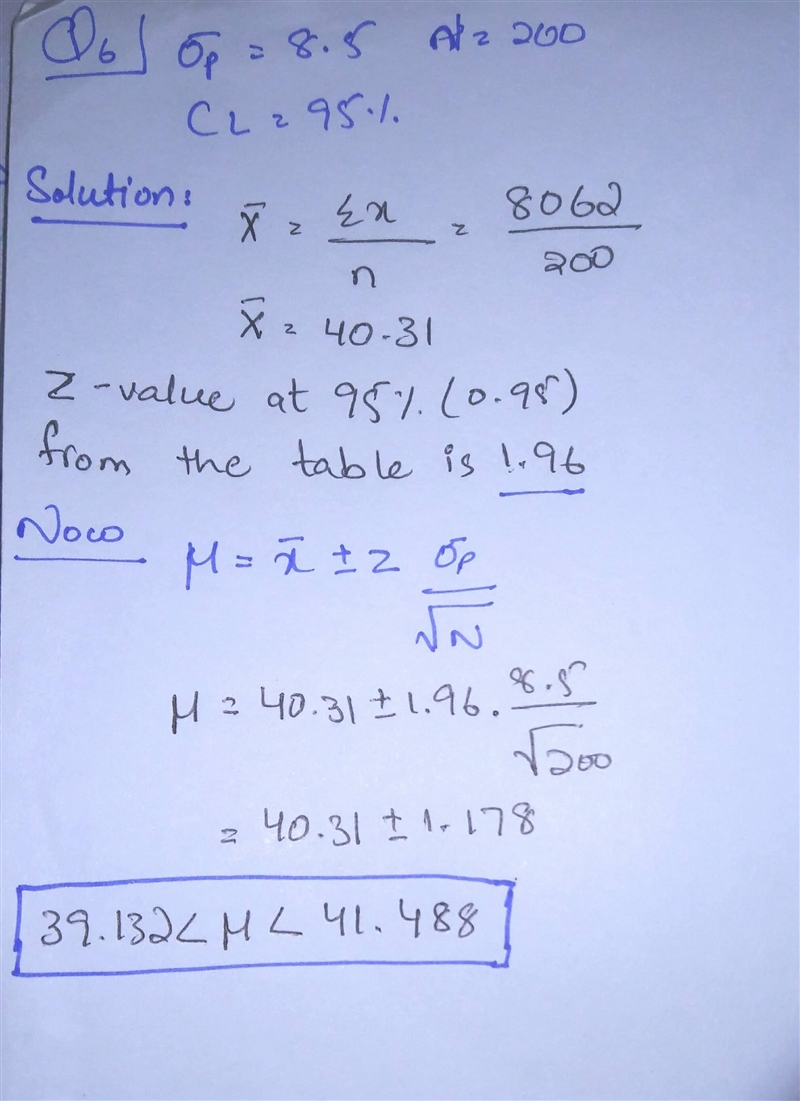 Q6 σp = 8.5 N = 200
CL = 95%
Solution:
X̄ = Σx / n = 8062 / 200
X̄ = 40.31
Z-value at 95% (0.95)
from the table is 1.96
Now
μ = x̄ ± z σp / √N
μ = 40.31 ± 1.96 . 8.5 / √200
= 40.31 ± 1.178
39.132 < μ < 41.488